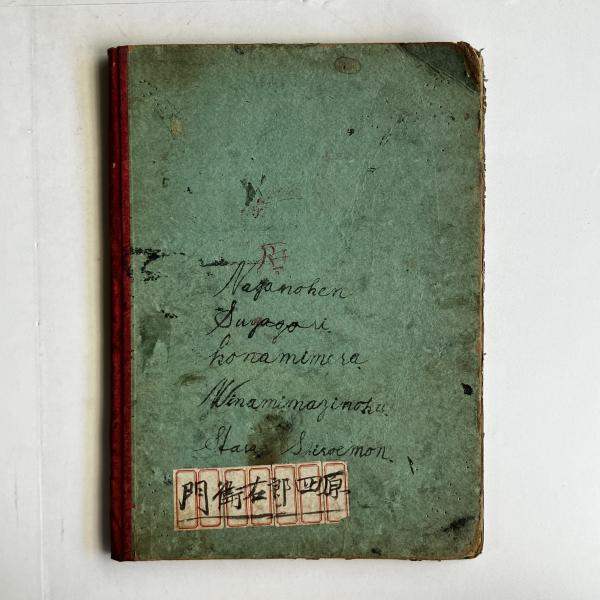 Naganohen
Suyagori.
Konamimera
Minamimazinohu.
Hara Siroemon.
原四郎右衛門